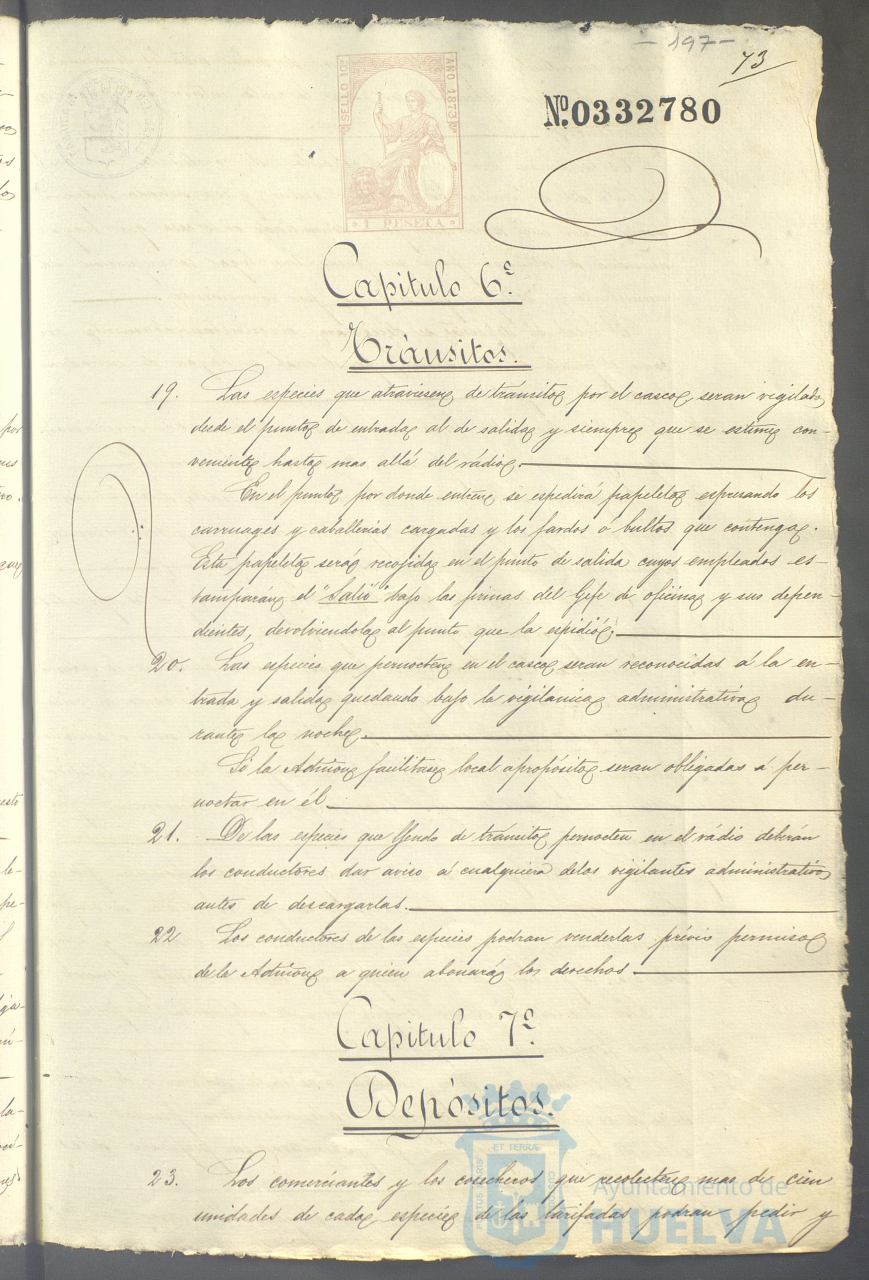 - 197 -
73
SELLO 10º
AÑO 1873
1 PESETA
Nº 0332780
Capitulo 6º
Tránsitos.
19. Las especies que atraviesen de tránsito por el casco, seran vigiladas
desde el punto de entrada al de salida y siempre que se estime con-
veniente hasta mas allá del rádio.
En el punto por donde entren se espedirá papeleta espresando los
carruages y caballerias cargadas y los fardos ó bultos que contenga.
Esta papeleta será recojida en el punto de salida cuyos empleados es-
tamparán el "Salió" bajo las firmas del Gefe de oficina y sus depen-
dientes, devolviendola al punto que la espidió.
20. Las especies que pernocten en el casco seran reconocidas á la en-
trada y salida quedando bajo la vigilancia administrativa du-
rante la noche.
Si la Admon facilitase local apropósito seran obligadas á per-
noctar en él.
21. De las especies que yendo de tránsito pernocten en el rádio deberán
los conductores dar aviso á cualquiera delos vigilantes administrativos
antes de descargarlas.
22 Los conductores de las especies podran venderlas prévio permiso
de la Admon a quien abonará los derechos
Capitulo 7º
Depósitos.
23. Los comerciantes y los cosecheros que recolecten mas de cien
unidades de cada especie de las tarifadas podran pedir y
ET TERRÆ
Ayuntamiento de
HUELVA